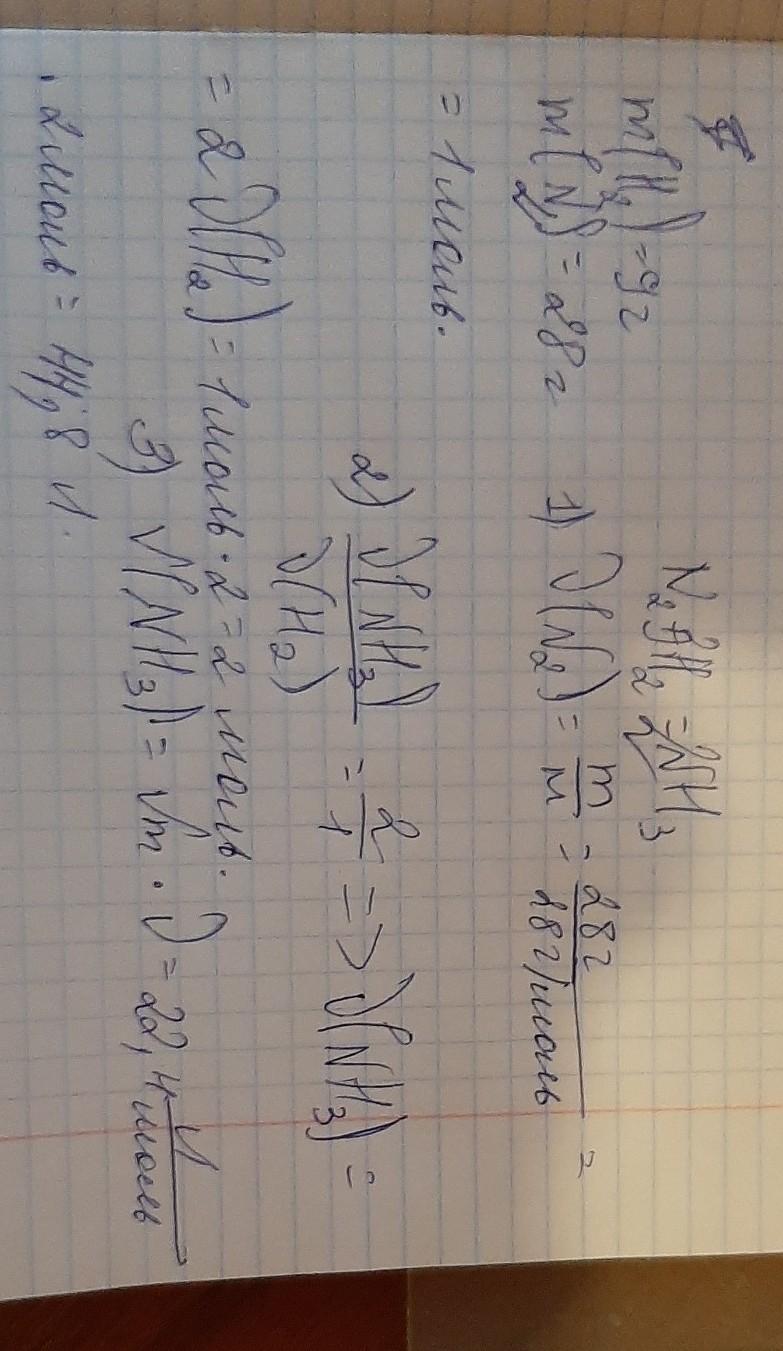 m(H₂) = 9г
N₂ + 3H₂ = 2NH₃
m(N₂) = 28г
1) ν(N₂) = m/M = 28г/28г/моль =
= 1 моль.
2) ν(NH₃)/ν(H₂) = 2/1 => ν(NH₃) =
= 2 ν(H₂) = 1 моль · 2 = 2 моль.
3) V(NH₃) = Vm · ν = 22,4 л/моль
· 2 моль = 44,8 л.